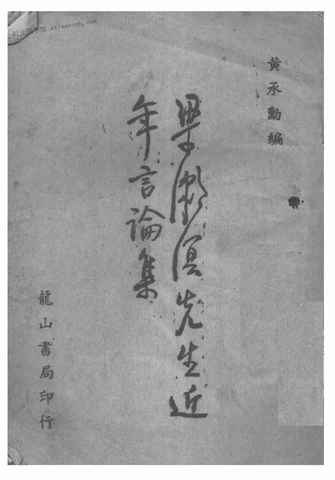 黄承勳編
梁漱溟先生近
年言論集
龍山書局印行